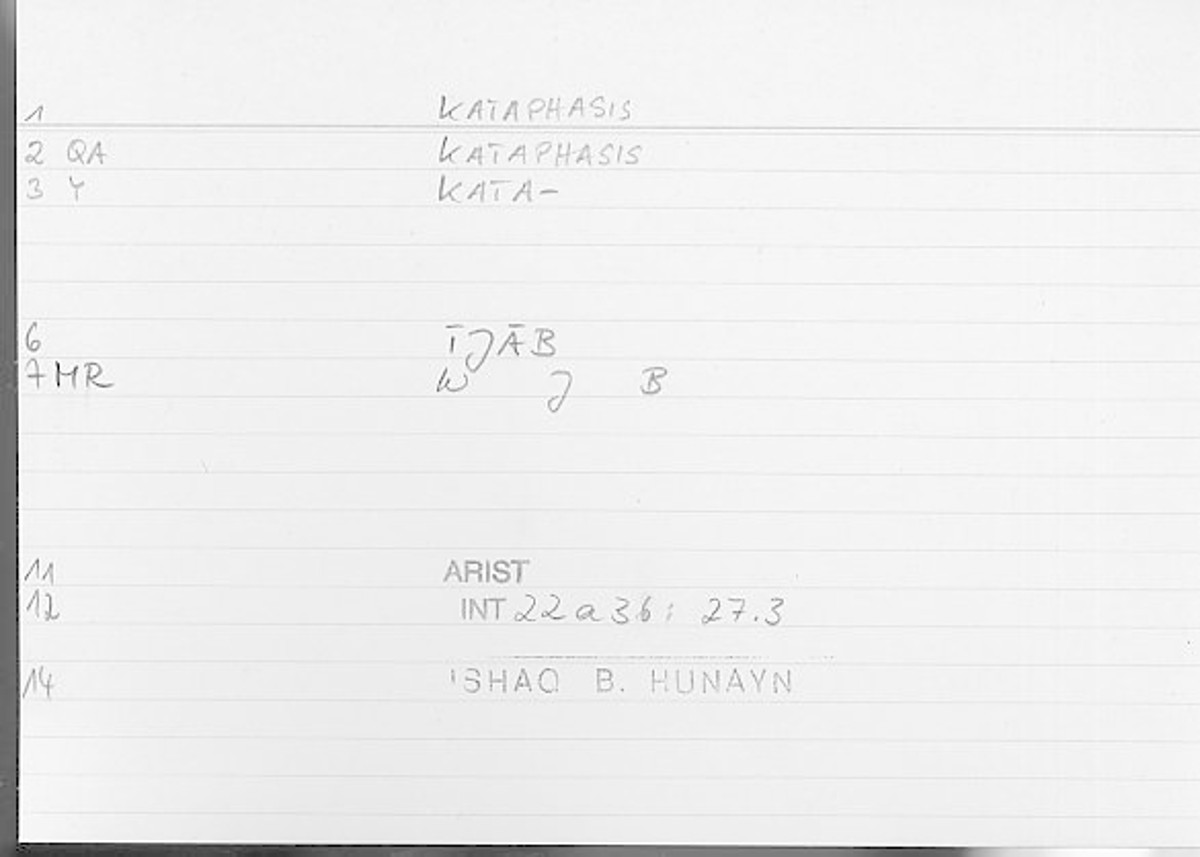 1 KATAPHASIS
2 QA KATAPHASIS
3 Y KATA-
6 ĪJĀB
7 MR W J B
11 ARIST
12 INT 22a36; 27.3
14 ISHAQ B. HUNAYN